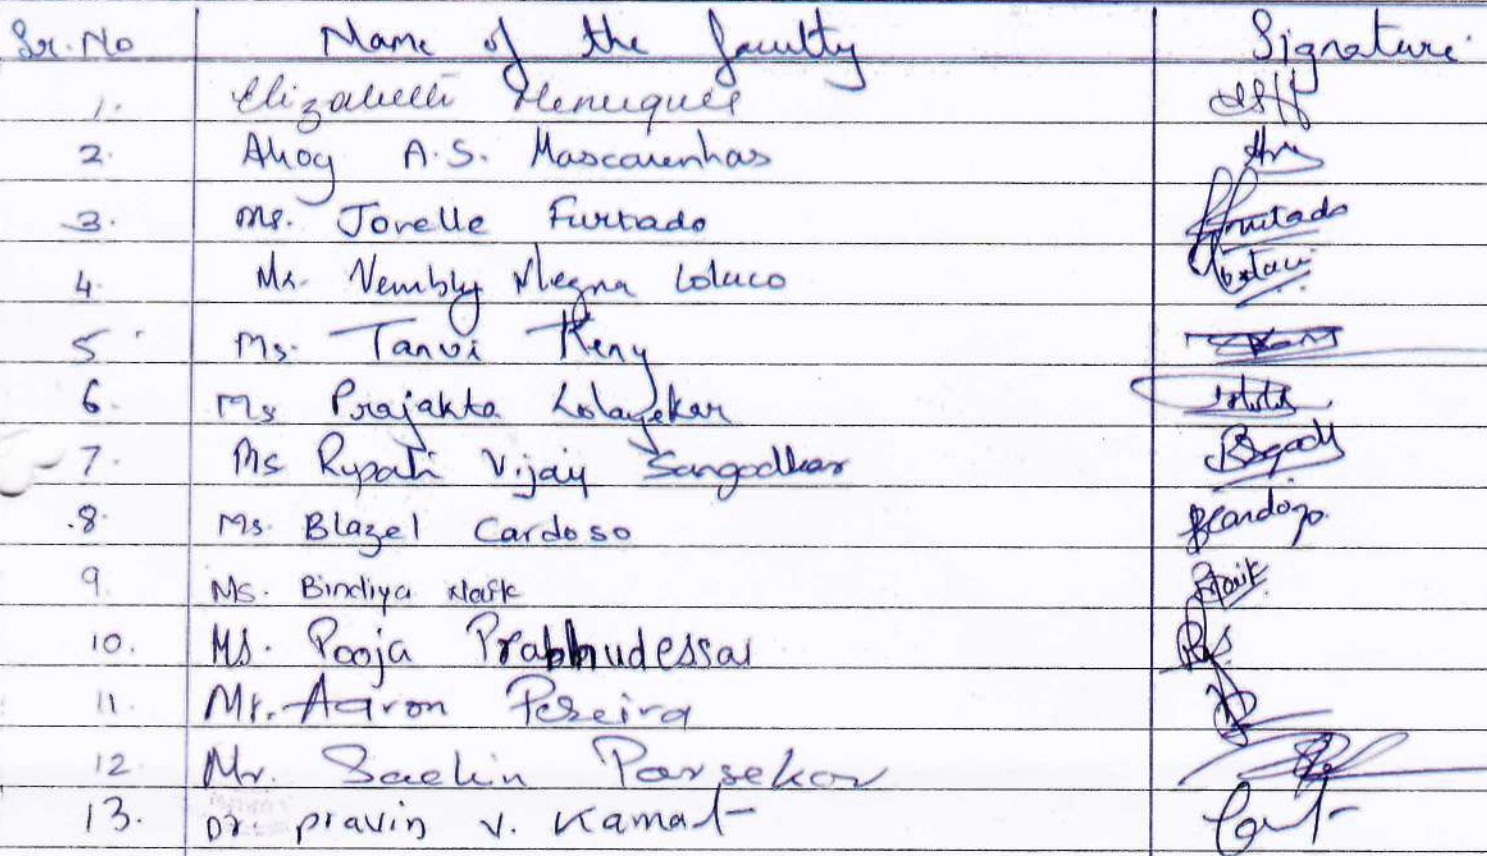 Sr. No Name of the faculty Signature
1. Elizabeth Henriques
2. Ahoy A.S. Mascarenhas
3. Ms. Jovelle Furtado Furtado
4. Ms. Vembly Colaco
5 Ms. Tanvi Keny
6. Ms Prajakta Lolayekar
7. Ms Rupali Vijay Sangodkar
8. Ms. Blazel Cardoso BCardozo
9. Ms. Bindiya Naik BNaik
10. Ms. Pooja Prabhudessai
11. Mr. Aaron Pereira
12. Mr. Sachin Parsekar
13. Dr. pravin v. Kamat